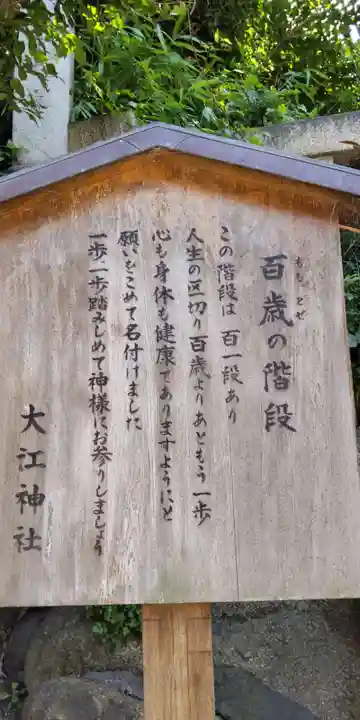 百歳の階段
ももとせ
この階段は 百一段あり
人生の区切り百歳よりあともう一歩
心も身体も健康でありますようにと
願いをこめて名付けました
一歩一歩踏みしめて神様にお参りしましょう
大江神社